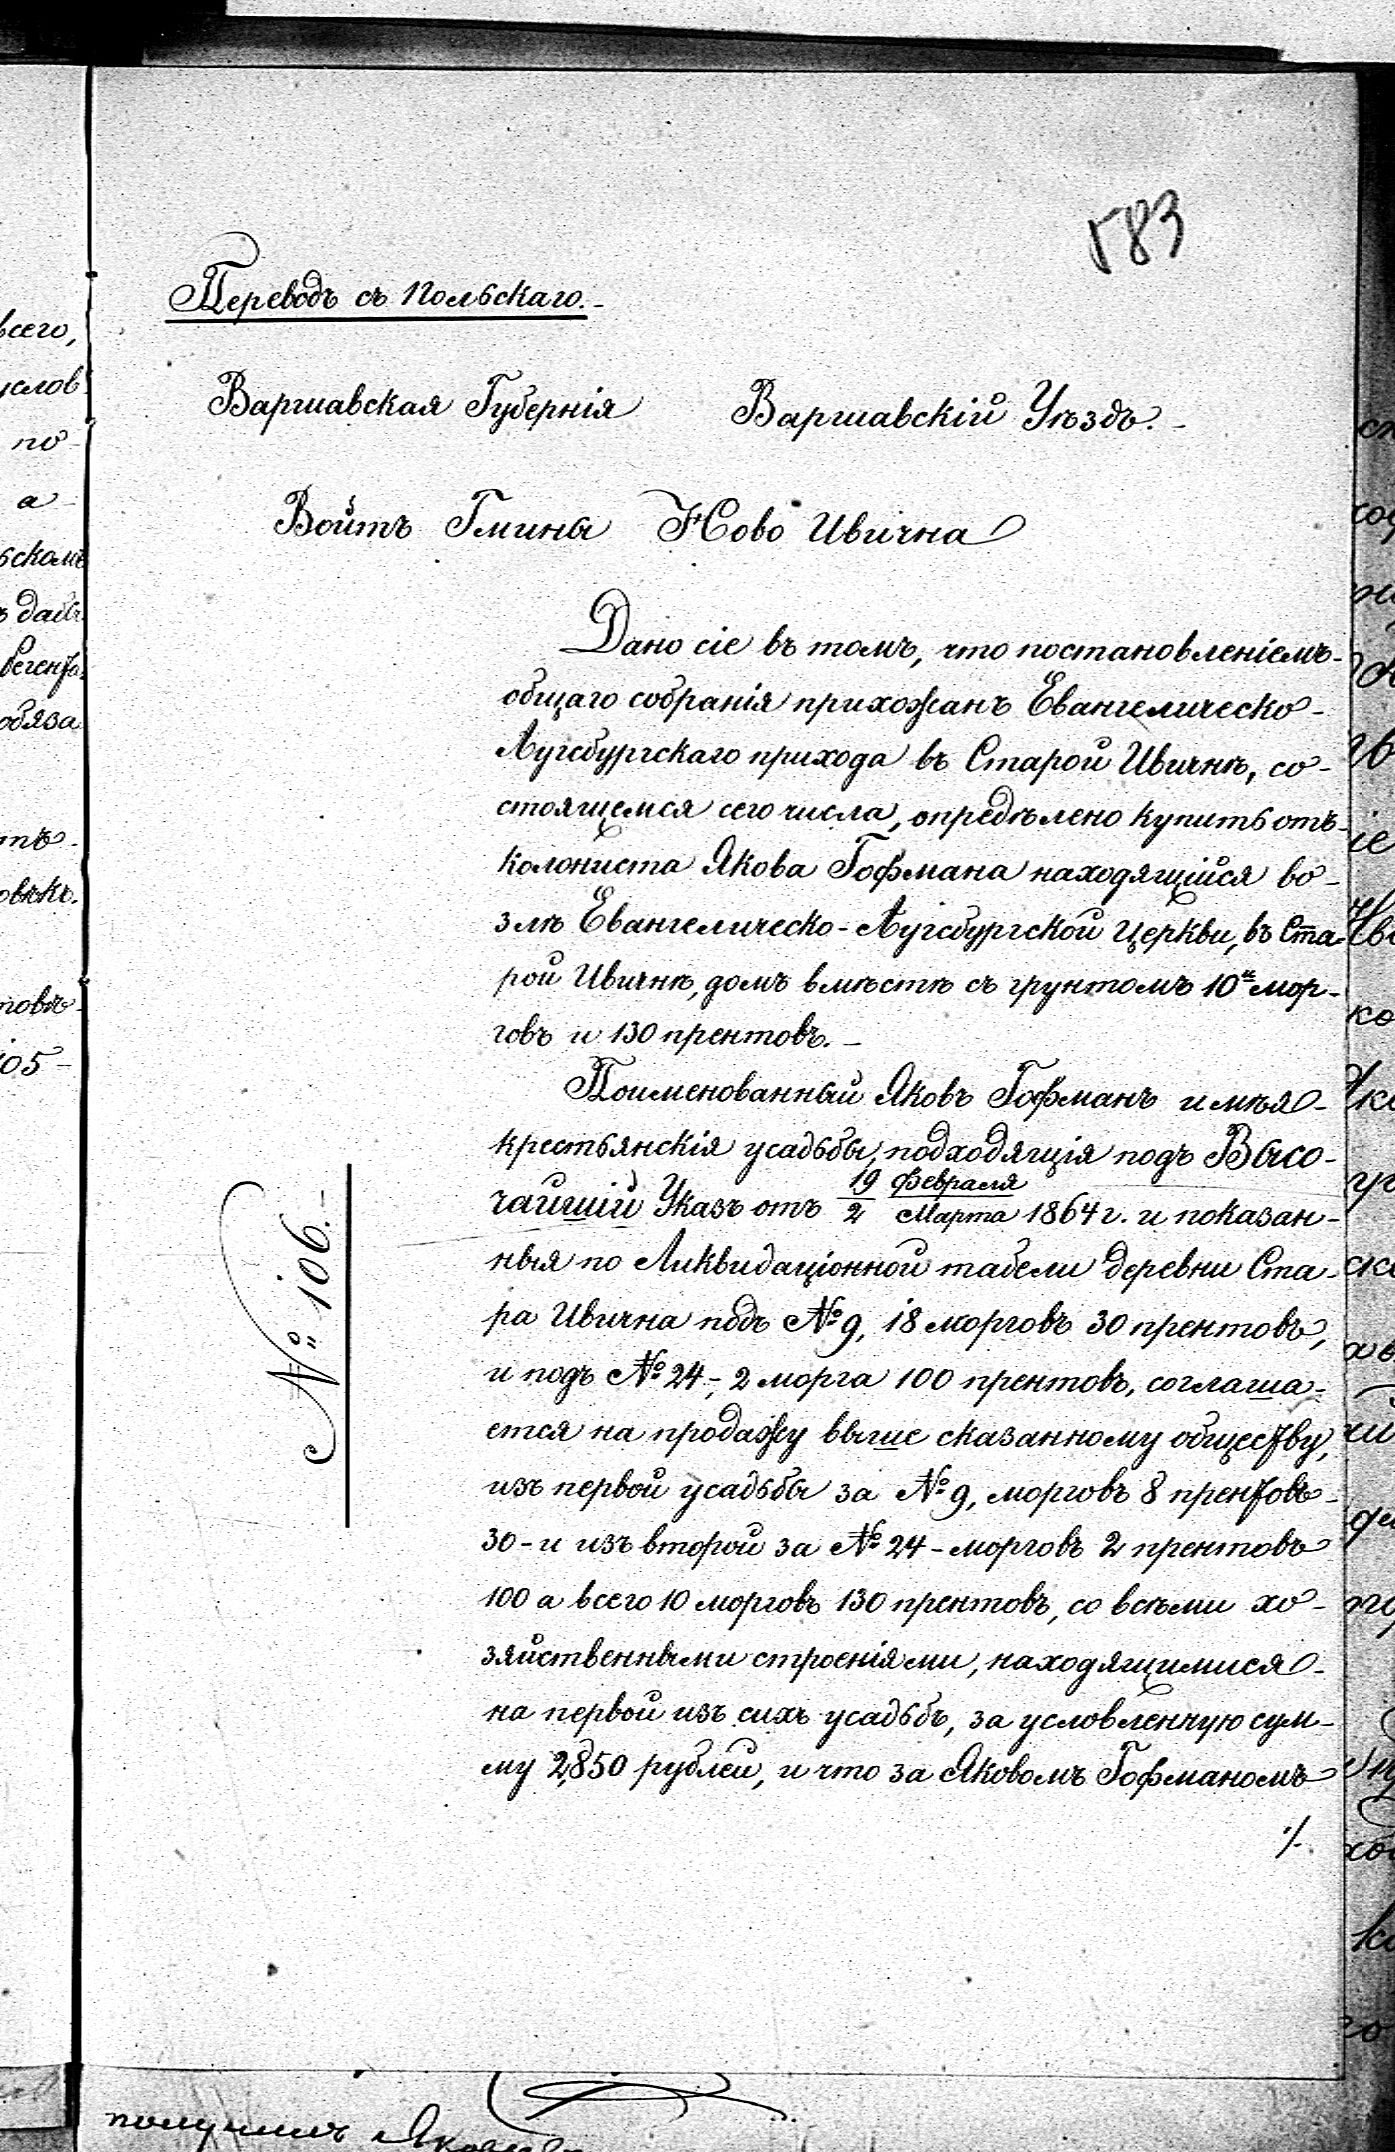 583
Переводъ съ Польскаго.-
Варшавская Губернія Варшавскій Уѣздъ.-
Войтъ Гмины Ново Ивична
Дано сіе въ томъ, что постановленіемъ-
общаго собранія прихожанъ Евангелическо-
Аугсбургскаго прихода въ Старой Ивичнѣ, со-
стоящемся сего числа, опредѣлено купить отъ-
колониста Якова Гофмана находящійся во-
злѣ Евангелическо-Аугсбургской Церкви, въ Ста-
рой Ивичнѣ, домъ вмѣстѣ съ грунтомъ 10и мор-
говъ и 130 прентовъ.-
Поименованный Яковъ Гофманъ имѣя-
крестьянскія усадьбы, подходящія подъ Высо-
чайшій Указъ отъ 19 Февраля / 2 Марта 1864 г. и показан-
ныя по Ликвидаціонной табели деревни Ста-
ра Ивична подъ № 9, 18 морговъ 30 прентовъ,
и подъ № 24-, 2 морга 100 прентовъ, соглаша-
ется на продажу выше сказанному обществу,
изъ первой усадьбы за № 9, морговъ 8 прентовъ-
30- и изъ второй за № 24- морговъ 2 прентовъ
100 а всего 10 морговъ 130 прентовъ, со всѣми хо-
зяйственными строеніями, находящимися-
на первой изъ сихъ усадьбъ, за условленную сум-
му 2,850 рублей, и что за Яковомъ Гофманомъ
./.
№ 106.-
всего,
услов
по-
а-
обяза
105-